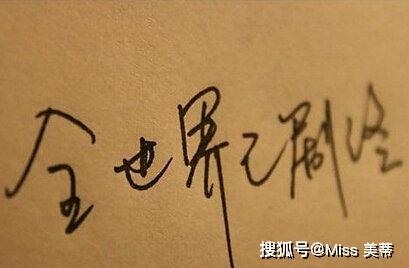 全世界之剧终
搜狐号@Miss 美蒂